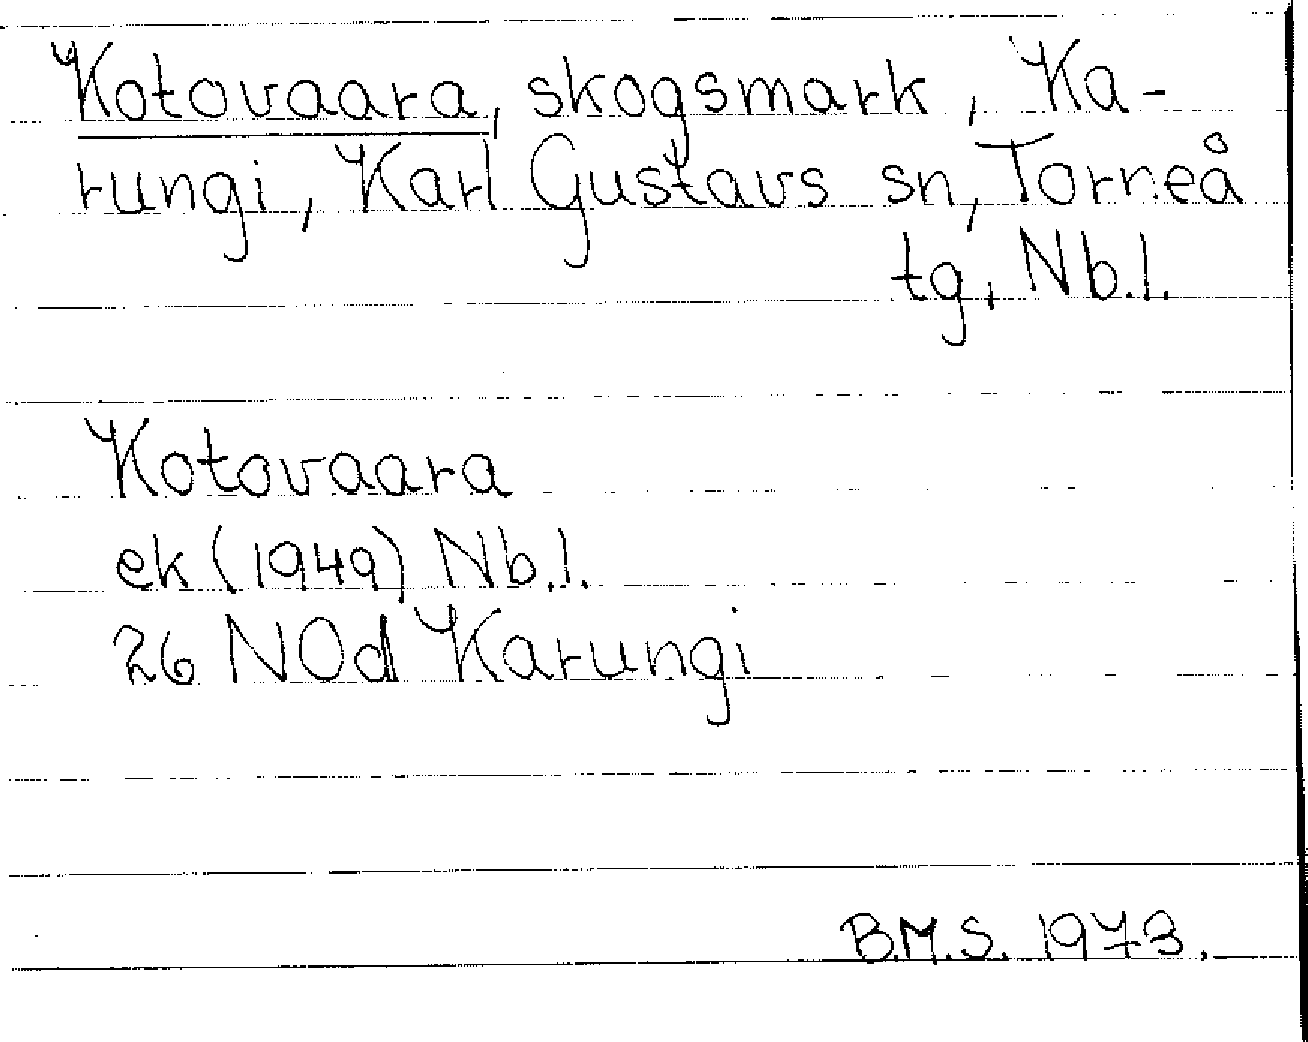 Kotovaara, skogsmark, Ka-
rungi, Karl Gustavs sn, Torneå
tg, Nb.l.
Kotovaara
ek (1949) Nb.l.
26 NOd Karungi
B.M.S. 1973.